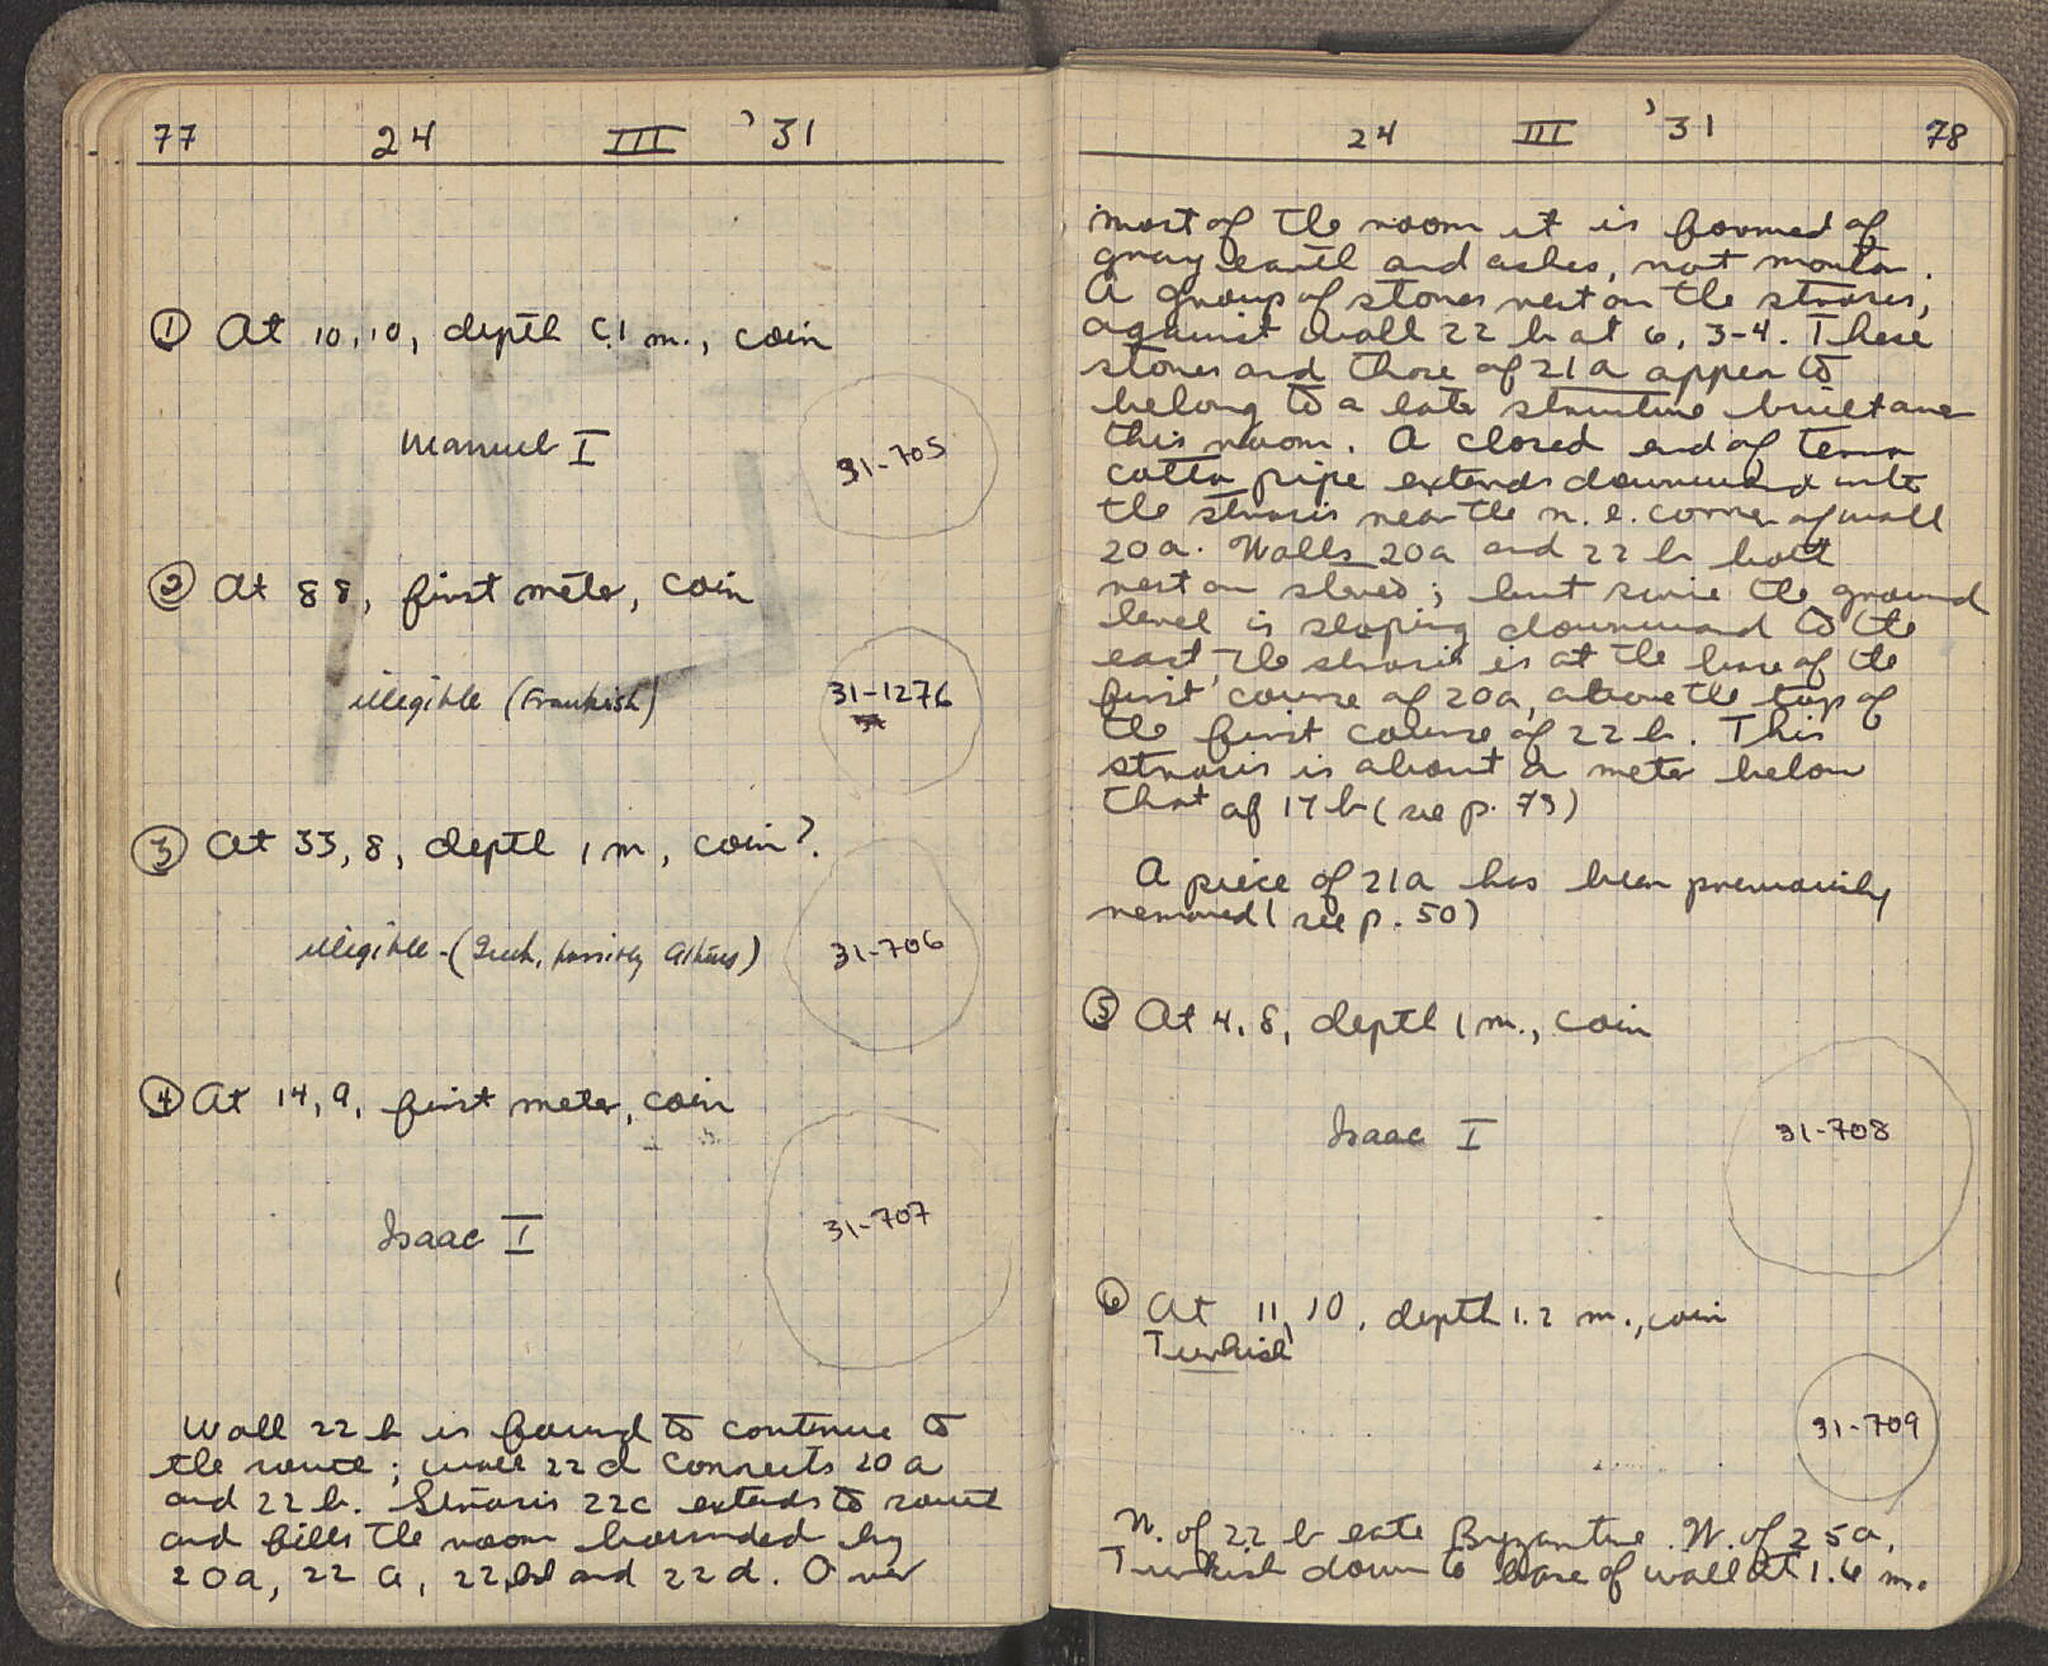 77 24 III '31
① At 10, 10, depth c.1 m., coin
Manuel I
31-705
② At 88, first meter, coin
illegible (Frankish)
31-1276
③ At 33, 8, depth 1 m, coin?
illegible - (Greek, possibly Athens)
31-706
④ At 14, 9, first meter, coin
Isaac I
31-707
Wall 22 b is found to continue to
the south; wall 22 d connects 20 a
and 22 b. Strosis 22c extends to south
and fills the room bounded by
20a, 22 a, 22 b and 22 d. Over
24 III '31 78
most of the room it is formed of
gray earth and ashes, not mortar.
A group of stones rest on the strosis,
against wall 22 b at 6, 3-4. These
stones and those of 21 a appear to
belong to a late structure built over
this room. A closed end of terra
cotta pipe extends downward into
the strosis near the n. e. corner of wall
20a. Walls 20a and 22 b both
rest on stereo; but since the ground
level is sloping downward to the
east, the strosis is at the base of the
first course of 20a, above the top of
the first course of 22 b. This
strosis is about a meter below
that of 17 b (see p. 73)
A piece of 21a has been previously
removed (see p. 50)
⑤ At 4, 8, depth 1 m., coin
Isaac I
31-708
⑥ At 11, 10, depth 1.2 m., coin
Turkish
31-709
N. of 22 b late Byzantine. N. of 25a,
Turkish down to base of wall at 1.6 m.